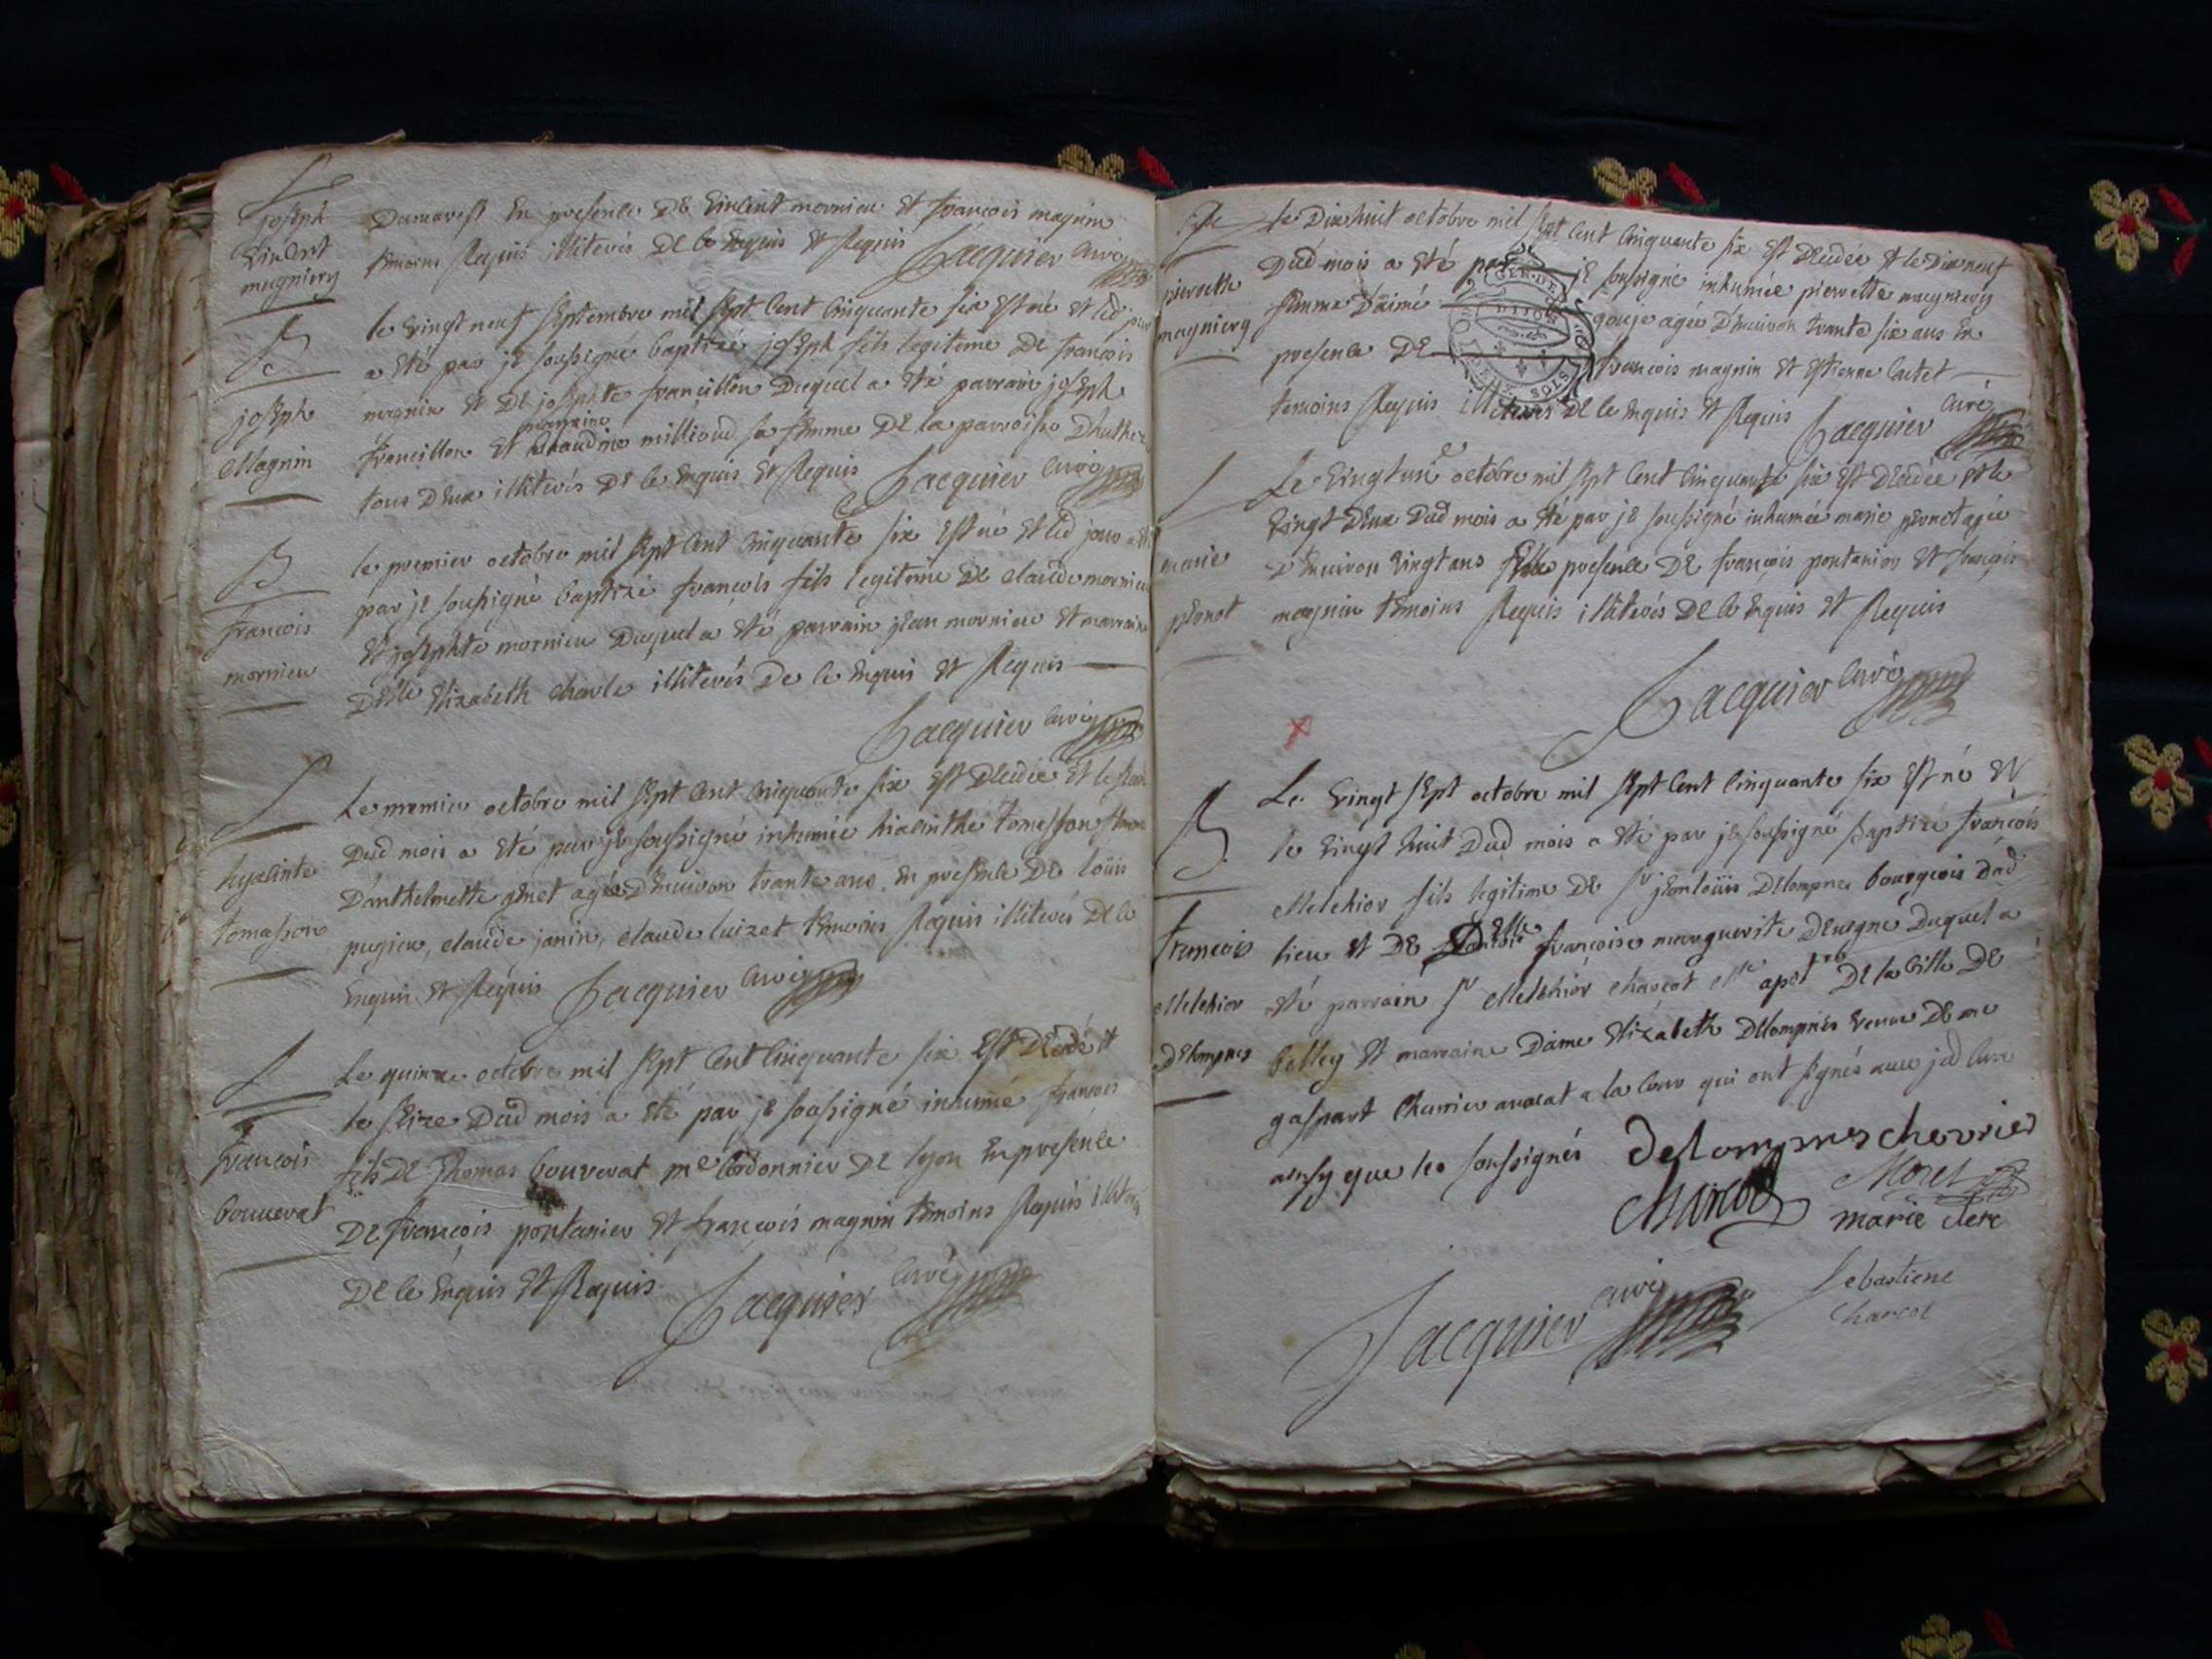 S
joseph
Vincent
magniery
Dumarest En presence DE Vincent mornieu Et francois magnin
temoins Requis illiterés DE ce Enquis Et Requis Jacquier curé
B
joseph
Magnin
le vingt neuf septembre mil sept cent cinquante six Est né et led jour
a Eté par jE soussigné baptizé josEph fils legitime DE francois
magnin Et DE josephte francillon Duquel a Eté parrain josEph
marraine
francillon Et claudine milliond sa fEmme DE la parroisse
tous DEux illiterés DE ce Enquis Et Requis Jacquier curé
B
francois
mornieu
le premier octobre mil sept cent cinquante six Est né Et led jour a Eté
par jE soussigné baptizé francois fils legitime DE claude mornieu
Et josephte mornieu Duquel a Eté parrain jEan mornieu Et marraine
DElle Elizabeth charle illiterés De ce Enquis Et Requis
Jacquier curé
S
hyacinte
tomasson
Le premier octobre mil sept cent cinquante six Est DEcedée Et le
Dud mois a Eté par jE soussigné inhumée hiacinthe tomasson femme
D'anthelmette genet agée D'Environ trante ans En presence DE loüis
pugieu, claude janin, claude luizet tEmoins Requis illiterés DE ce
Enquis Et Requis Jacquier curé
S
francois
bouverat
Le quinze octobre mil sept cent cinquante six Est DEcedé Et
le sEize Dud mois a Eté par jE soussigné inhumé francois
fils DE Thomas bouverat me cordonnier DE lyon En presence
DE francois pontanier Et francois magnin tEmoins Requis illiterés
DE ce Enquis Et Requis Jacquier curé
Spe
pierrette
magniery
le Dix huit octobre mil sept cent cinquante six Est DEcedée Et le Dix neuf
Dud mois a Eté par jE soussigné inhumée pierrette magniery
fEmme D'aimé gouje agée D'Environ trante six ans En
presence DE francois magnin Et Estienne cutet
temoins Requis illiterés DE ce Enquis Et Requis Jacquier curé
S
marie
pErnot
Le vingt un octobre mil sept cent cinquante six Est DEcedée Et le
vingt DEux Dud mois a Eté par jE soussigné inhumée marie pErnot agée
D'Environ vingt ans En presence DE francois pontanier Et francois
magnin tEmoins Requis illiterés DE ce Enquis Et Requis
Jacquier curé
B
francois
Melchior
DElompnes
Le vingt sEpt octobre mil sept cent cinquante six Est né Et
le vingt huit Dud mois a Eté par jE soussigné baptizé francois
Melchior fils legitime DE Sr jEan loüis DElompnes bourgeois dud
lieu Et DE DElle francoise marguerite DEvigne Duquel a
Eté parrain Sr Melchior charcot Me apotre DE la ville DE
belley Et marraine Dame Elizabeth DElompnes vEuve DE me
gaspart Chevrier avocat a la cour qui ont signés avec jed curé
ainsy que les soussignés delompnes chevrier
Charcot
Morel
marie clerc
Jacquier curé
sebastiene
charcot